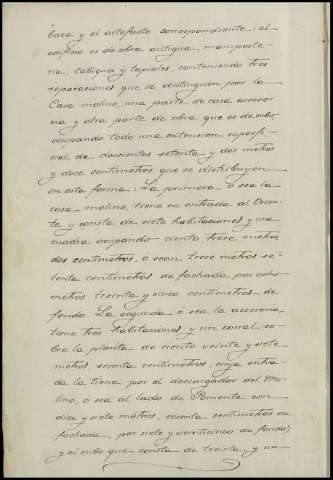 baza y el artefacto correspondiente: el
edificio es de obra antigua, mamposte-
ria, tabiques y tapiales, conteniendo tres
separaciones que se distinguen por la
Casa molino, una parte de casa acceso-
ria y otra parte de obra que es de cubo,
ocupando todo una extension superfi-
cial de doscientos setenta y dos metros
y doce centimetros que se distribuyen
en esta forma: La primera ó sea la
casa molino, tiene su entrada al Orien-
te y consta de siete habitaciones y una
cuadra ocupando ciento trece metros
dos centimetros, ó sean trece metros se-
tenta centimetros de fachada, por ocho
metros treinta y cinco centimetros de
fondo. La segunda ó sea la accesoria,
tiene tres habitaciones y un corral so-
bre la planta de ciento veinte y siete
metros, sesenta centimetros, cuya entra-
da la tiene por el descargador del Mo-
lino, ó sea al lado de Poniente con
diez y siete metros, sesenta centimetros de
fachada, por siete y veinticinco de fondo;
y el cubo que consta de treinta y un